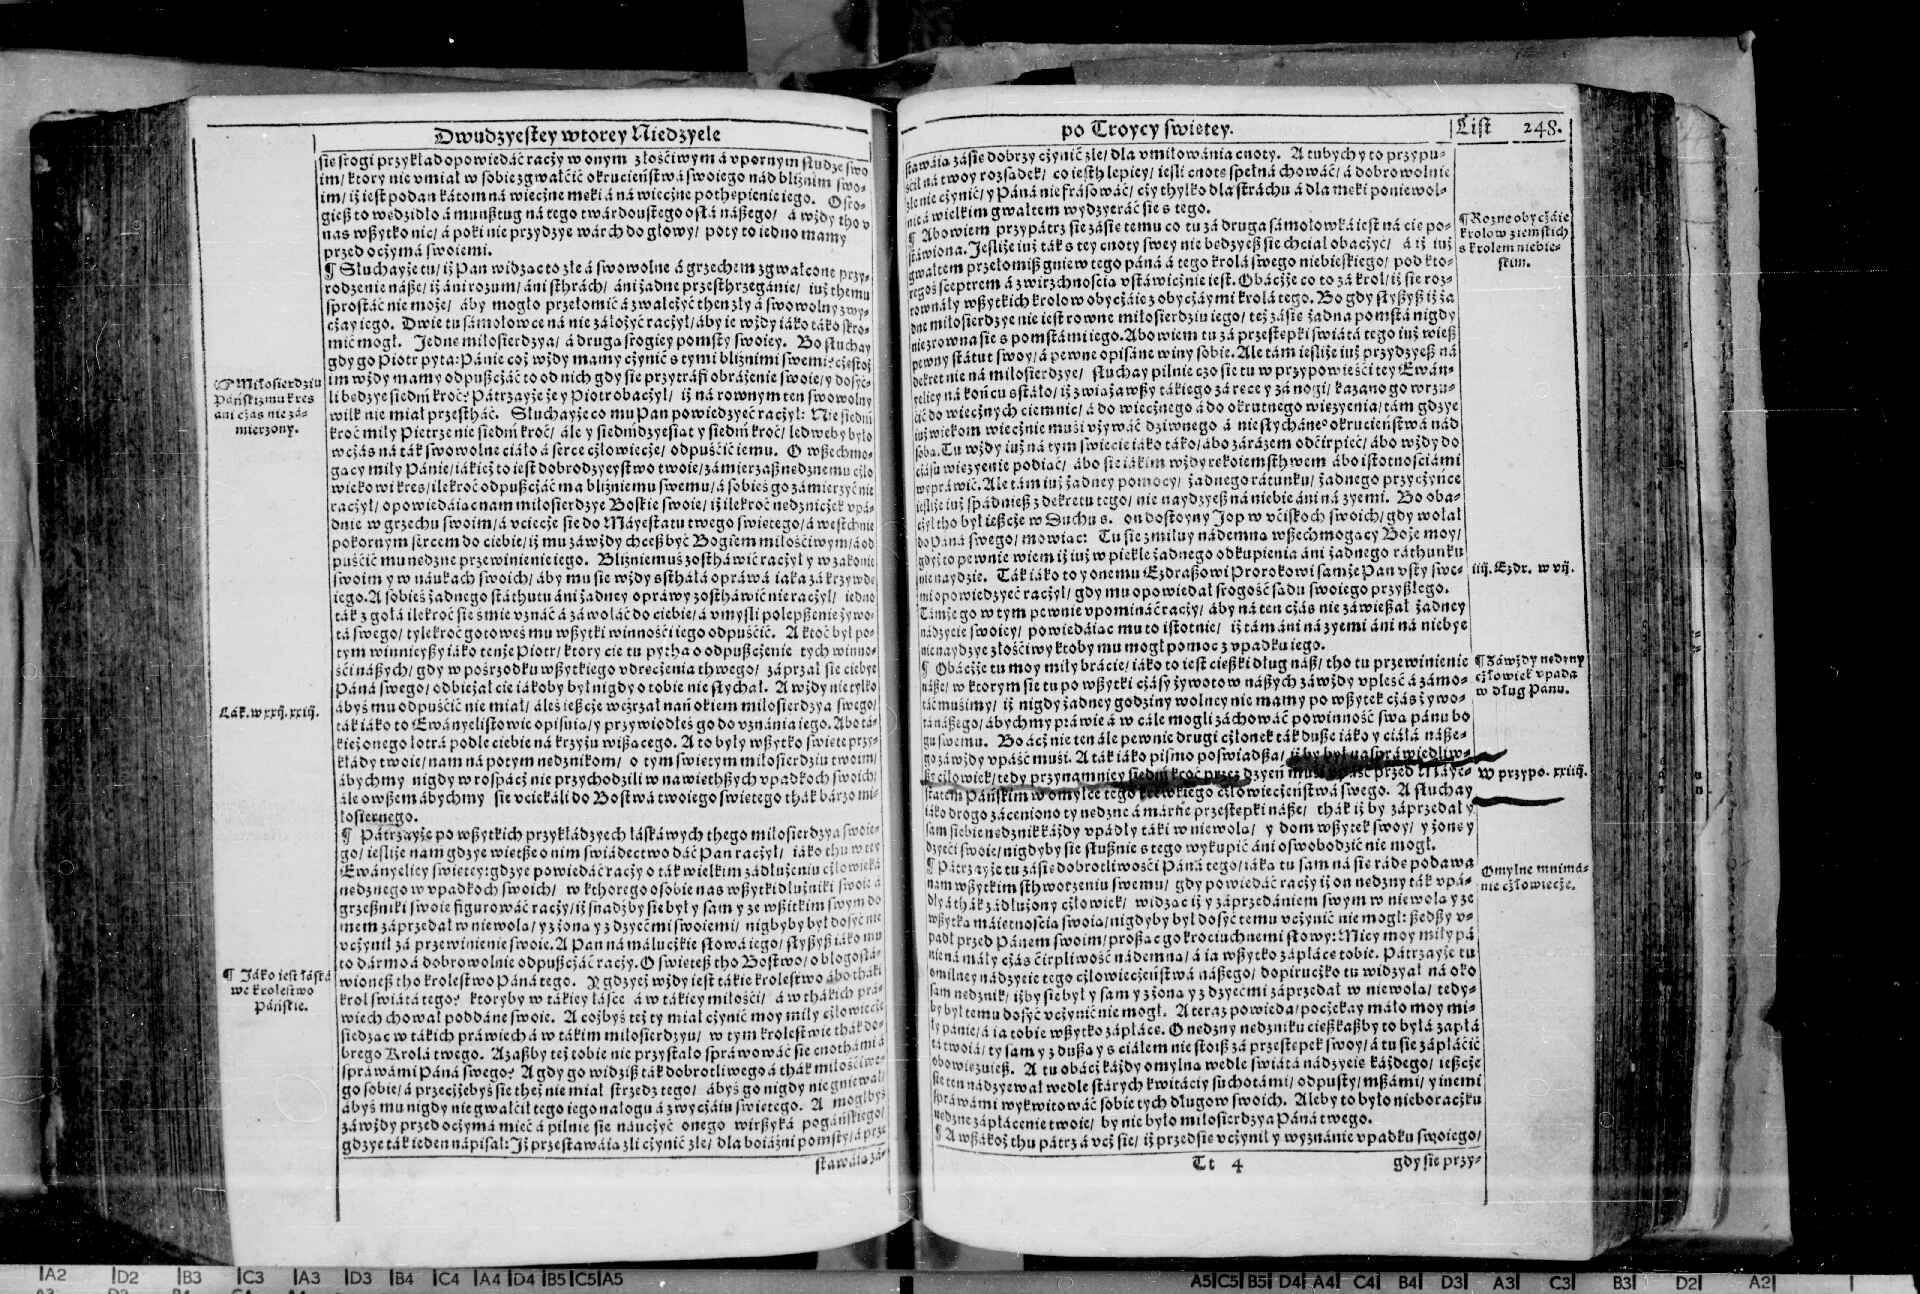 Dwudzyestey wtorey Niedzyele
sie srogi przykład opowiedáć racży w onym złościwym á vpornym słudze swo
im/ ktory nie vmiał w sobie zgwałcić okrucieństwá swoiego nád bliźnim swo-
im/ iż iest podan kátom ná wiecżne meki á ná wiecżne pothepienie iego. Osro-
gież to wedzidło á munsztug ná tego twárdoustego osłá nászego/ á wżdy tho v
nas wszytko nic/ á poki nie przydzye wárch do głowy/ poty to iedno mamy
przed ocżymá swoiemi.
¶ Słuchayże tu/ iż Pan widząc to złe á swowolne á grzechem zgwałcone przy-
rodzenie násze/ iż áni rozum/ áni sthrách/ áni żadne przesthrzegánie/ iuż themu
sprostáć nie może/ áby mogło przełomić á zwalcżyć then zły á swowolny zwy-
cżay iego. Dwie tu sámołowce ná nie záłożyć racżył/ áby ie wżdy iáko táko skro-
mić mogł. Jedne miłosierdzya/ á druga srogiey pomsty swoiey. Bo słuchay
gdy go Piotr pyta: Pánie coż wżdy mamy cżynić s tymi bliźnimi swemi: cżęstoż
im wżdy mamy odpuszcżáć to od nich gdy sie przytráfi obráżenie swoie/ y dosyć-
li bedzye siedḿ kroć: Pátrzayże że y Piotr obacżył/ iż ná rownym ten swowolny
wilk nie miał przestháć. Słuchayże co mu Pan powiedzyeć racżył: Nie siedḿ
kroć miły Pietrze nie siedḿ kroć/ ále y siedḿdzyesiat y siedḿ kroć/ ledwe by było
wcżás ná ták swowolne ciáło á serce cżłowiecże/ odpuścić iemu. O wszechmo-
gacy miły Pánie/ iákież to iest dobrodzyeystwo twoie/ zámierzasz nedznemu cżło
wiekowi kres/ ilekroć odpuszcżáć ma bliźniemu swemu/ á sobieś go zámierzyć nie
racżył/ opowiedáiac nam miłosierdzye Boskie swoie/ iż ilekroć nedznicżek vpá-
dnie w grzechu swoim/ á vciecże sie do Máyestatu twego swietego/ á westchnie
pokornym sercem do ciebie/ iż mu záwżdy chcesz być Bogiem miłościwym/ á od
puścić mu nedzne przewinienie iego. Bliźniemuś zostháwić racżył y w zakonie
swoim y w náukach swoich/ áby mu sie wżdy ssthálá opráwá iáka zá krzywde
iego. A sobieś żadnego státhutu áni żadney opráwy zostháwić nie racżył/ iedno
ták z gołá ilekroć sie śmie vznáć á záwołáć do ciebie/ á vmyśli polepszenie żywo-
tá swego/ tylekroć gotoweś mu wszytki winności iego odpuścić. A ktoć był po-
tym winnieyszy iáko tenże Piotr/ ktory cie tu pytha o odpuszcżenie tych winno-
ści nászych/ gdy w pośrzodku wszytkiego vdrecżenia thwego/ záprzał sie ciebye
Páná swego/ odbieżał cie iákoby był nigdy o tobie nie słychał. A wżdy nie tylko
ábyś mu odpuścić nie miał/ áleś ieszcże weźrzał nań okiem miłosierdzya swego/
ták iáko to Ewányelistowie opisuia/ y przywiodłeś go do vznánia iego. Abo tá-
kieżonego łotrá podle ciebie ná krzyżu wiszacego. A to były wszytko swiete przy-
kłády twoie/ nam ná potym nedznikom/ o tym swietym miłosierdziu twoim/
ábychmy nigdy w rospacż nie przychodzili w nawiethszych vpadkoch swoich/
ále owszem ábychmy sie vciekáli do Bostwá twoiego swietego thák bárzo mi-
łosiernego.
¶ Pátrzayże po wszytkich przykłádzyech łáskáwych thego miłosierdzya swoie-
go/ iesliże nam gdzye wietsze o nim swiádectwo dáć Pan racżył/ iáko thu w tey
Ewányelicy swietey: gdzye powiedáć racży o ták wielkim zádłużeniu cżłowieká
nedznego w vpadkoch swoich/ w kthorego osobie nas wszytki dłużniki swoie á
grzeszniki swoie figurowáć racży/ iż snadźby sie był y sam y ze wszitkim swym do
mem záprzedał w niewola/ y z żona y z dzyećmi swoiemi/ nigbyby był dosyć nie
vcżynił zá przewinienie swoie. A Pan ná málucżkie słowá iego/ słyszysz iáko mu
to dármo á dobrowolnie odpuszcżáć racży. O swieteż tho Bostwo/ o błogosłá-
wioneż tho krolestwo Páná tego. Y gdzyeż wżdy iest tákie krolestwo ábo tháki
krol swiátá tego: ktoryby w tákiey łásce á w tákiey miłości/ á w thákich prá-
wiech chował poddáne swoie. A cożbyś też ty miał cżynić moy miły cżłowiecże
siedzac w tákich práwiech á w tákim miłosierdzyu/ w tym krolestwie thák do-
brego Krolá twego. Azaszby też tobie nie przystało spráwowáć sie cnothámi á
spráwámi Páná swego: A gdy go widzisz ták dobrotliwego á thák miłościwe-
go sobie/ á przecżżebyś sie theż nie miał strzedz tego/ ábyś go nigdy nie gniewał/
ábyś mu nigdy nie gwałcił tego iego nálogu á zwycżáiu swietego. A mogłbyś
záwżdy przed ocżymá mieć á pilnie sie náucżyć onego wirszyká pogáńskiego/
gdzye ták ieden nápisał: Iż przestawáia zli cżynić złe/ dla boiáźni pomsty/ á prze
stawáia zá-
☞ Miłosierdziu
Páńskizmu kres
áni cżás nie zá-
mierzony.
Łuk. w xxij. xxiij.
¶ Jáko iest łáská
we krolestwo
Páńskie.
po Troycy swietey.
List 248.
stawáia zásie dobrzy cżynić złe/ dla vmiłowánia cnoty. A tubych y to przypu-
ścił ná twoy rozsadek/ co iesth lepiey/ iesli cnote spełná chowáć/ á dobrowolnie
źle nie cżynić/ y Páná nie frásowáć/ cży thylko dla stráchu á dla meki poniewol-
nie á wielkim gwałtem wydzyeráć sie s tego.
¶ Abowiem przypátrz sie zásie temu co tu zá druga sámołowká iest ná cie po-
stáwiona. Jesliże iuż ták s tey cnoty swey nie bedzyesz sie chciał obacżyć/ á iż iuż
gwałtem przełomisz gniew tego páná á tego krolá swego niebieskiego/ pod kto-
regoś sceptrem á zwirzchnoscia vstáwicżnie iest. Obacżże co to zá krol/ iż sie roz-
rownáły wszytkich krolow obycżáie z obycżáymi krolá tego. Bo gdy słyszysz iż ża
dne miłosierdzye nie iest rowne miłosierdziu iego/ też zásie żadna pomstá nigdy
nie zrowna sie s pomstámi iego. Abowiem tu zá przestepki swiátá tego iuż wiesz
pewny státut swoy/ á pewne opisáne winy sobie. Ale tám iesliże iuż przydzyesz ná
dekret nie ná miłosierdzye/ słuchay pilnie czo sie tu w przypowieści tey Ewán-
yelicy ná końcu sstáło/ iż zwiażawszy tákiego zá rece y zá nogi/ kazano go wrzu-
cić do wiecżnych ciemnic/ á do wiecżnego á do okrutnego wiezyenia/ tám gdzye
iuż wiekom wiecżnie musi vżywáć dziwnego á niesłychánego okrucieństwá nád
soba. Tu wżdy iuż ná tym swiecie iáko táko/ ábo zárázem odcirpieć/ ábo wżdy do
cżásu wiezyenie podiać/ ábo sie iákim wżdy rekoiemsthwem ábo istotnościámi
wepráwić. Ale tám iuż żadney pomocy/ żadnego rátunku/ żadnego przycżyńce
iesliże iuż spádniesz z dekretu tego/ nie naydzyesz ná niebie áni ná zyemi. Bo oba-
cżył tho był ieszcże w Duchu s. on dostoyny Jop w vciskoch swoich/ gdy wołał
do Páná swego/ mowiac: Tu sie zmiłuy nádemna wszechmogacy Boże moy/
gdyż to pewnie wiem iż iuż w piekle żadnego odkupienia áni żadnego ráthunku
nie naydzie. Ták iáko to y onemu Ezdraszowi Prorokowi samże Pan vsty swe-
mi opowiedzyeć racżył/ gdy mu opowiedał srogość sadu swoiego przyszłego.
Tamże go w tym pewnie vpomináć racży/ áby ná ten cżás nie záwieszał żadney
nádzyeie swoiey/ powiedáiac mu to istotnie/ iż tám áni ná zyemi áni ná niebye
nie naydzye złościwy ktoby mu mogł pomoc z vpadku iego.
¶ Obacżże tu moy miły brácie/ iáko to iest cieszki dług nász/ tho tu przewinienie
násze/ w ktorym sie tu po wszytki cżásy żywotow nászych záwżdy vpleść á zámo-
táć musimy/ iż nigdy żadney godziny wolney nie mamy po wszytek cżás żywo-
tá nászego/ ábychmy práwie á w cále mogli záchowáć powinność swa pánu bo
gu swemu. Bo ácż nie ten ále pewnie drugi cżłonek ták dusze iáko y ciáłá násze-
go záwżdy vpaść musi. A ták iáko pismo poswiadsza/ iżby był nasprawiedliw-
szy cżłowiek/ tedy przynamniey siedḿ kroć przez dzyeń musi vpáść przed Máye-
statem Páńskim w omylce tego krewkiego cżłowiecżeństwá swego. A słuchay
iáko drogo záceniono ty nedzne á marne przestepki násze/ thák iż by záprzedał y
sam siebie nedznik káżdy vpádły táki w niewola/ y dom wszytek swoy/ y żone y
dzyeci swoie/ nigdyby sie słusznie s tego wykupić áni oswobodzić nie mogł.
¶ Pátrzayże tu zásie dobrotliwości Páná tego/ iáka tu sam ná sie ráde podawa
nam wszytkim sthworzeniu swemu/ gdy powiedáć racży iż on nedzny ták vpá-
dły á thák zádłużony cżłowiek/ widzac iż y záprzedániem swym w niewola y ze
wszytka máietnoscia swoia/ nigdyby był dosyć temu vcżynić nie mogł: szedszy v-
padł przed Pánem swoim/ proszac go krociuchnemi słowy: Miey moy miły pá
nie ná máły cżás cirpliwość nádemna/ á ia wszytko zápłáce tobie. Pátrzayże tu
omilney nádzyeie tego cżłowiecżeństwá nászego/ dopirucżko tu widzyał ná oko
sam nednik/ iżby sie był y sam y z żona y z dzyećmi záprzedał w niewola/ tedy-
by był temu dosyć vcżynić nie mogł. A teraz powieda/ pocżekay máło moy mi-
ły pánie/ á ia tobie wszytko zápłáce. O nedzny nedzniku cieszkaszby to byłá zapłá
tá twoiá/ ty sam y z dusza y s ciáłem nie stoisz zá przestepek swoy/ á tu sie zápłácić
obowiezuiesz. A tu obacż káżdy omylna wedle swiátá nádzyeie káżdego/ ieszcże
sie ten nádzyewał wedle stárych kwitáciy suchotámi/ odpusty/ mszámi/ y inemi
spráwámi wykwitowáć sobie tych długow swoich. Ale by to było nieboracżku
nedzne zápłácenie twoie/ by nie było miłosierdzya Páná twego.
¶ A wszákoż thu pátrz á vcż sie/ iż przedsie vcżynił y wyznánie vpadku swoiego/
Tt 4 gdy sie przy-
¶ Rozne obycżáie
krolow ziemskich
s krolem niebie-
skim.
iiij. Ezdr. w vij.
¶ Záwżdy nedzny
cżłowiek vpada
w dług Pánu.
w przypo. xxiiij.
Omylne mnimá-
nie cżłowiecże.